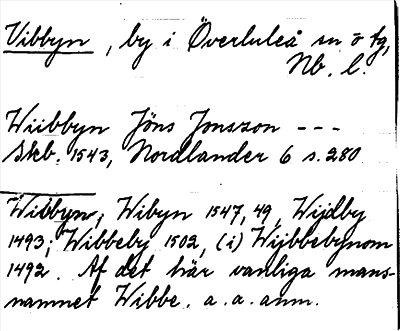 Vibbyn, by i Överluleå sn o tg,
Nb. l.
Wiibbyn Jöns Jonszon ---
Skb. 1543, Nordlander 6 s. 280
Wibbyn, Wibyn 1547, 49, Wijdby
1493; Wibbeby 1502, (i) Wijbbebynom
1492. Af det här vanliga mans-
namnet Wibbe. a. a. anm.